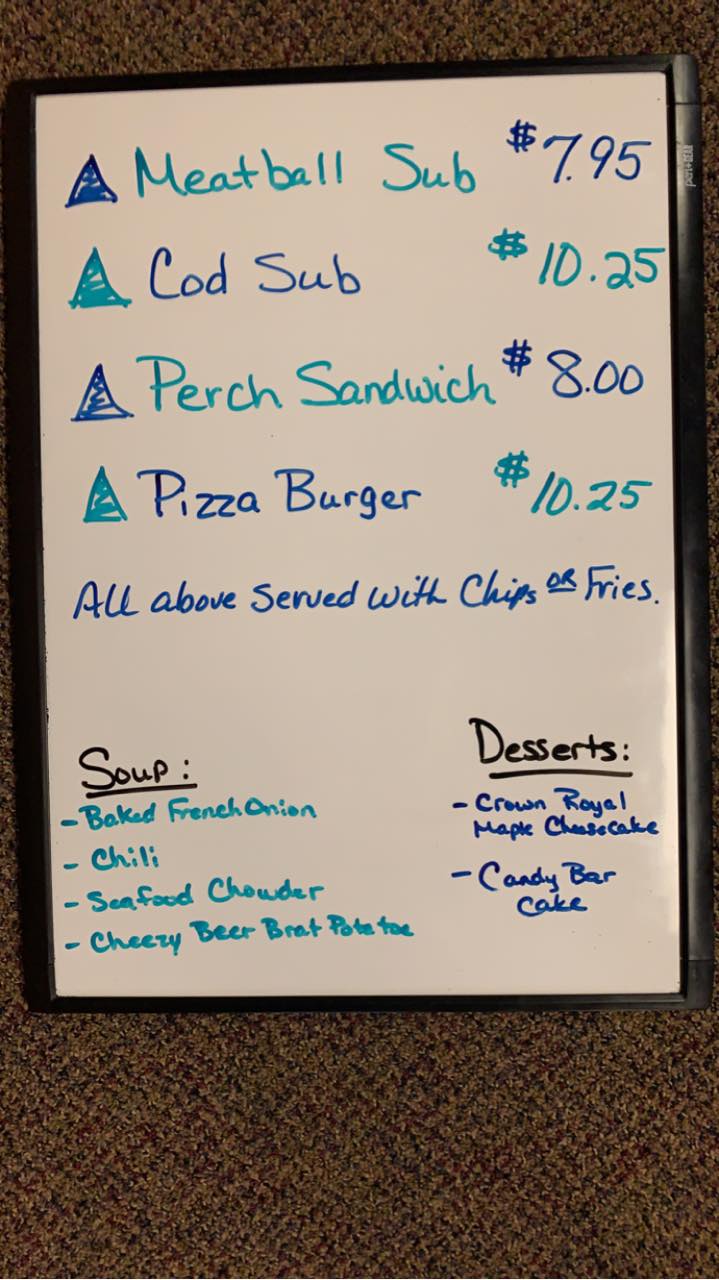 Meatball Sub $7.95
Cod Sub $10.25
Perch Sandwich $8.00
Pizza Burger $10.25
All above served with Chips OR Fries.
Soup:
- Baked French Onion
- Chili
- Seafood Chowder
- Cheezy Beer Brat Potatoe
Desserts:
- Crown Royal
Maple Cheesecake
- Candy Bar
Cake